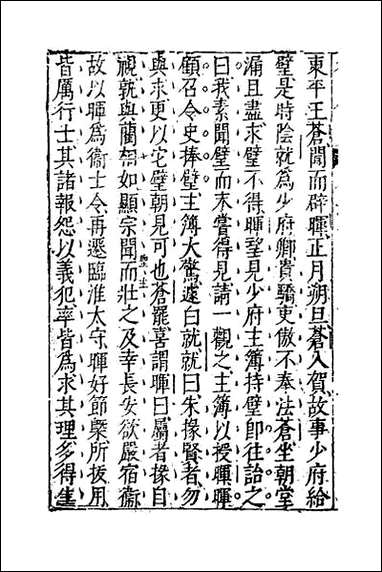 東平王蒼聞而辟暉正月朔旦蒼入賀故事少府給
璧是時陰就爲少府卿貴驕吏傲不奉法蒼坐朝堂
漏且盡求璧不得暉望見少府主簿持璧卽往詒之
曰我素聞璧而未嘗得見請一觀之主簿以授暉暉
顧召令史捧璧主簿大驚遽白就就曰朱掾賢者勿
與求更以它璧朝見可也蒼罷喜謂暉曰屬者掾自
視就與藺相如顯宗聞而壯之及幸長安欲嚴宿衞
故以暉爲衞士令再遷臨淮太守暉好節槩所拔用
皆厲行士其諸報怨以義犯率皆爲求其理多得生